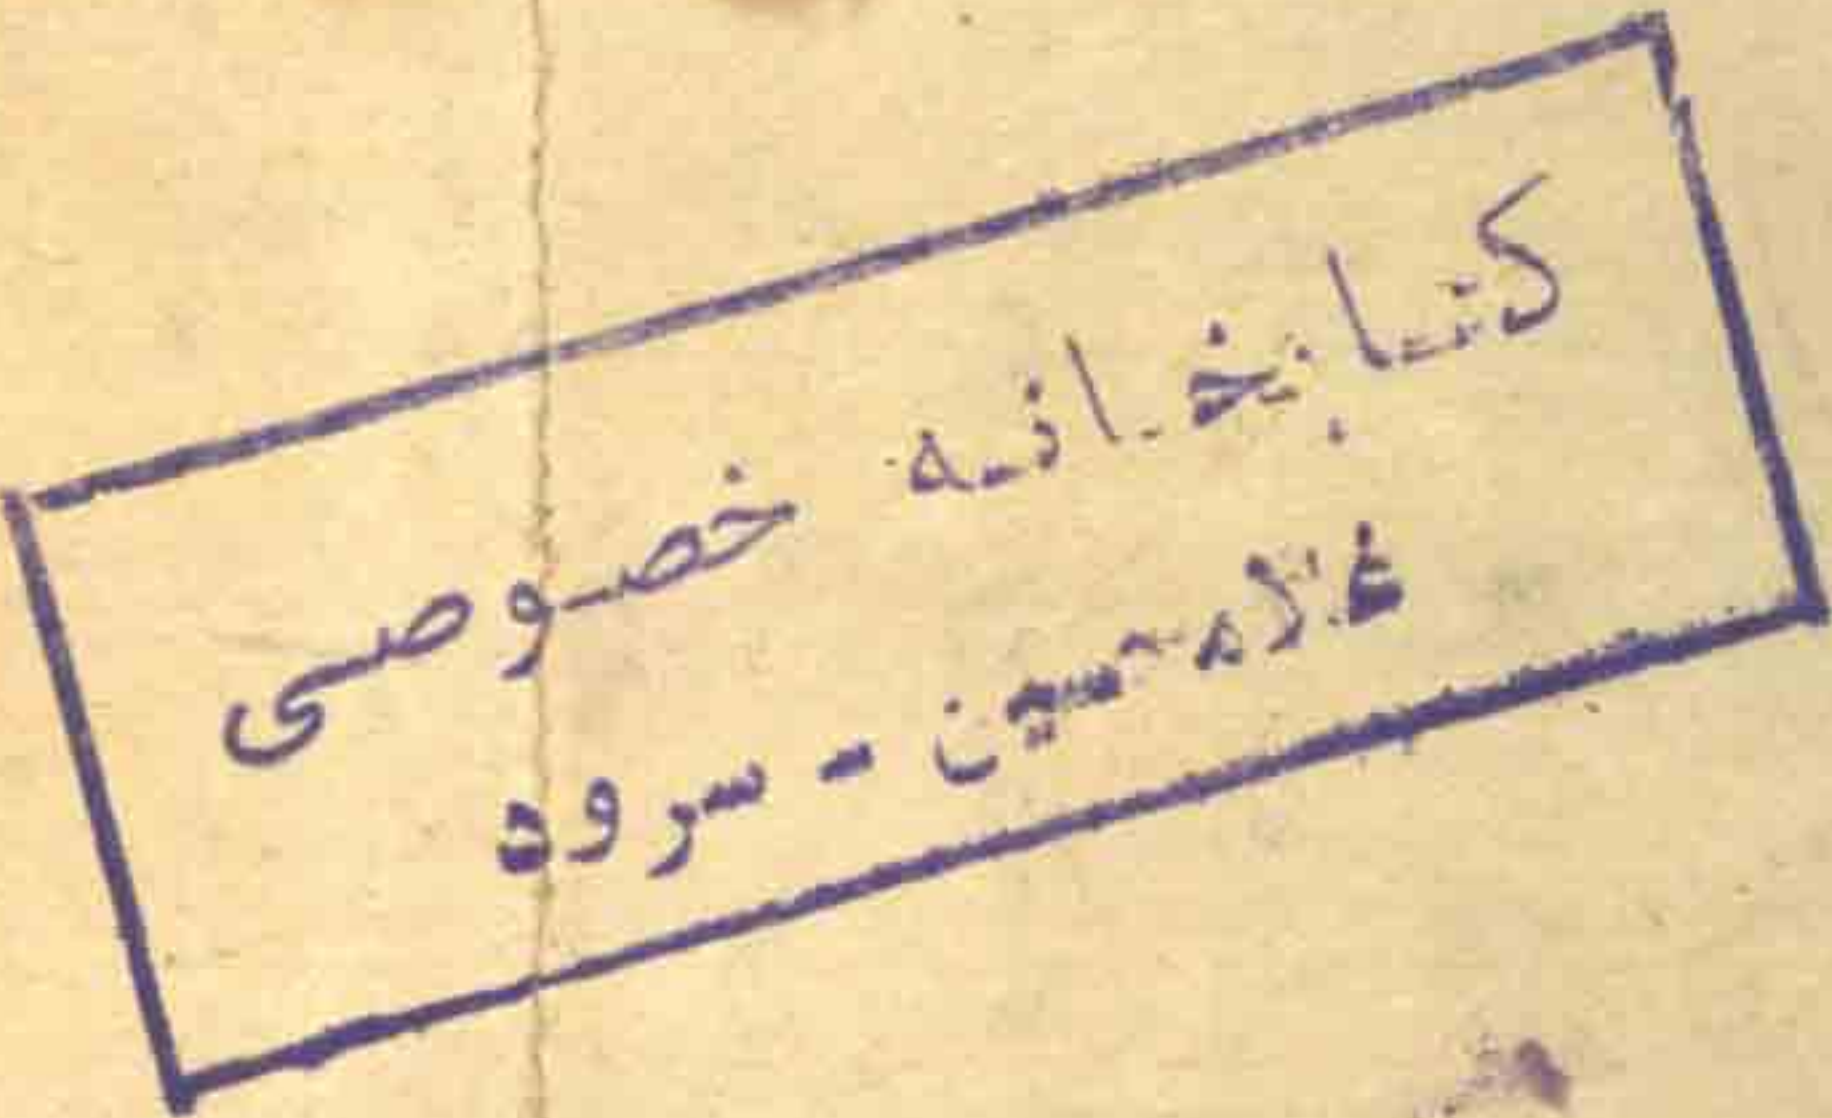 کتابخانه خصوصی
غلامحسین - سرود